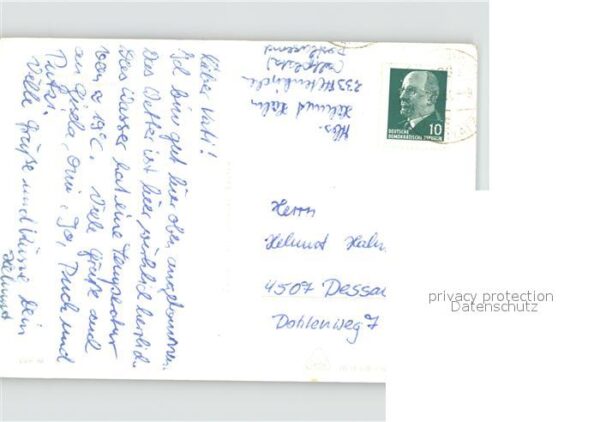 Lieber Vati!
Ich bin gut hier oben angekommen.
Das Wetter ist hier wirklich herrlich.
Das Wasser hat eine Temperatur
von ≈ 19°C. Viele Grüße auch
an Gisela, Omi, Jo, und
Putzi.
Viele Grüße und Küsse Dein
Helmut
Abs.
Helmut Hahn
Herrn
Helmut Hahn
4507 Dessau
Dohlenweg 7
10
DEUTSCHE
DEMOKRATISCHE REPUBLIK
privacy protection
Datenschutz